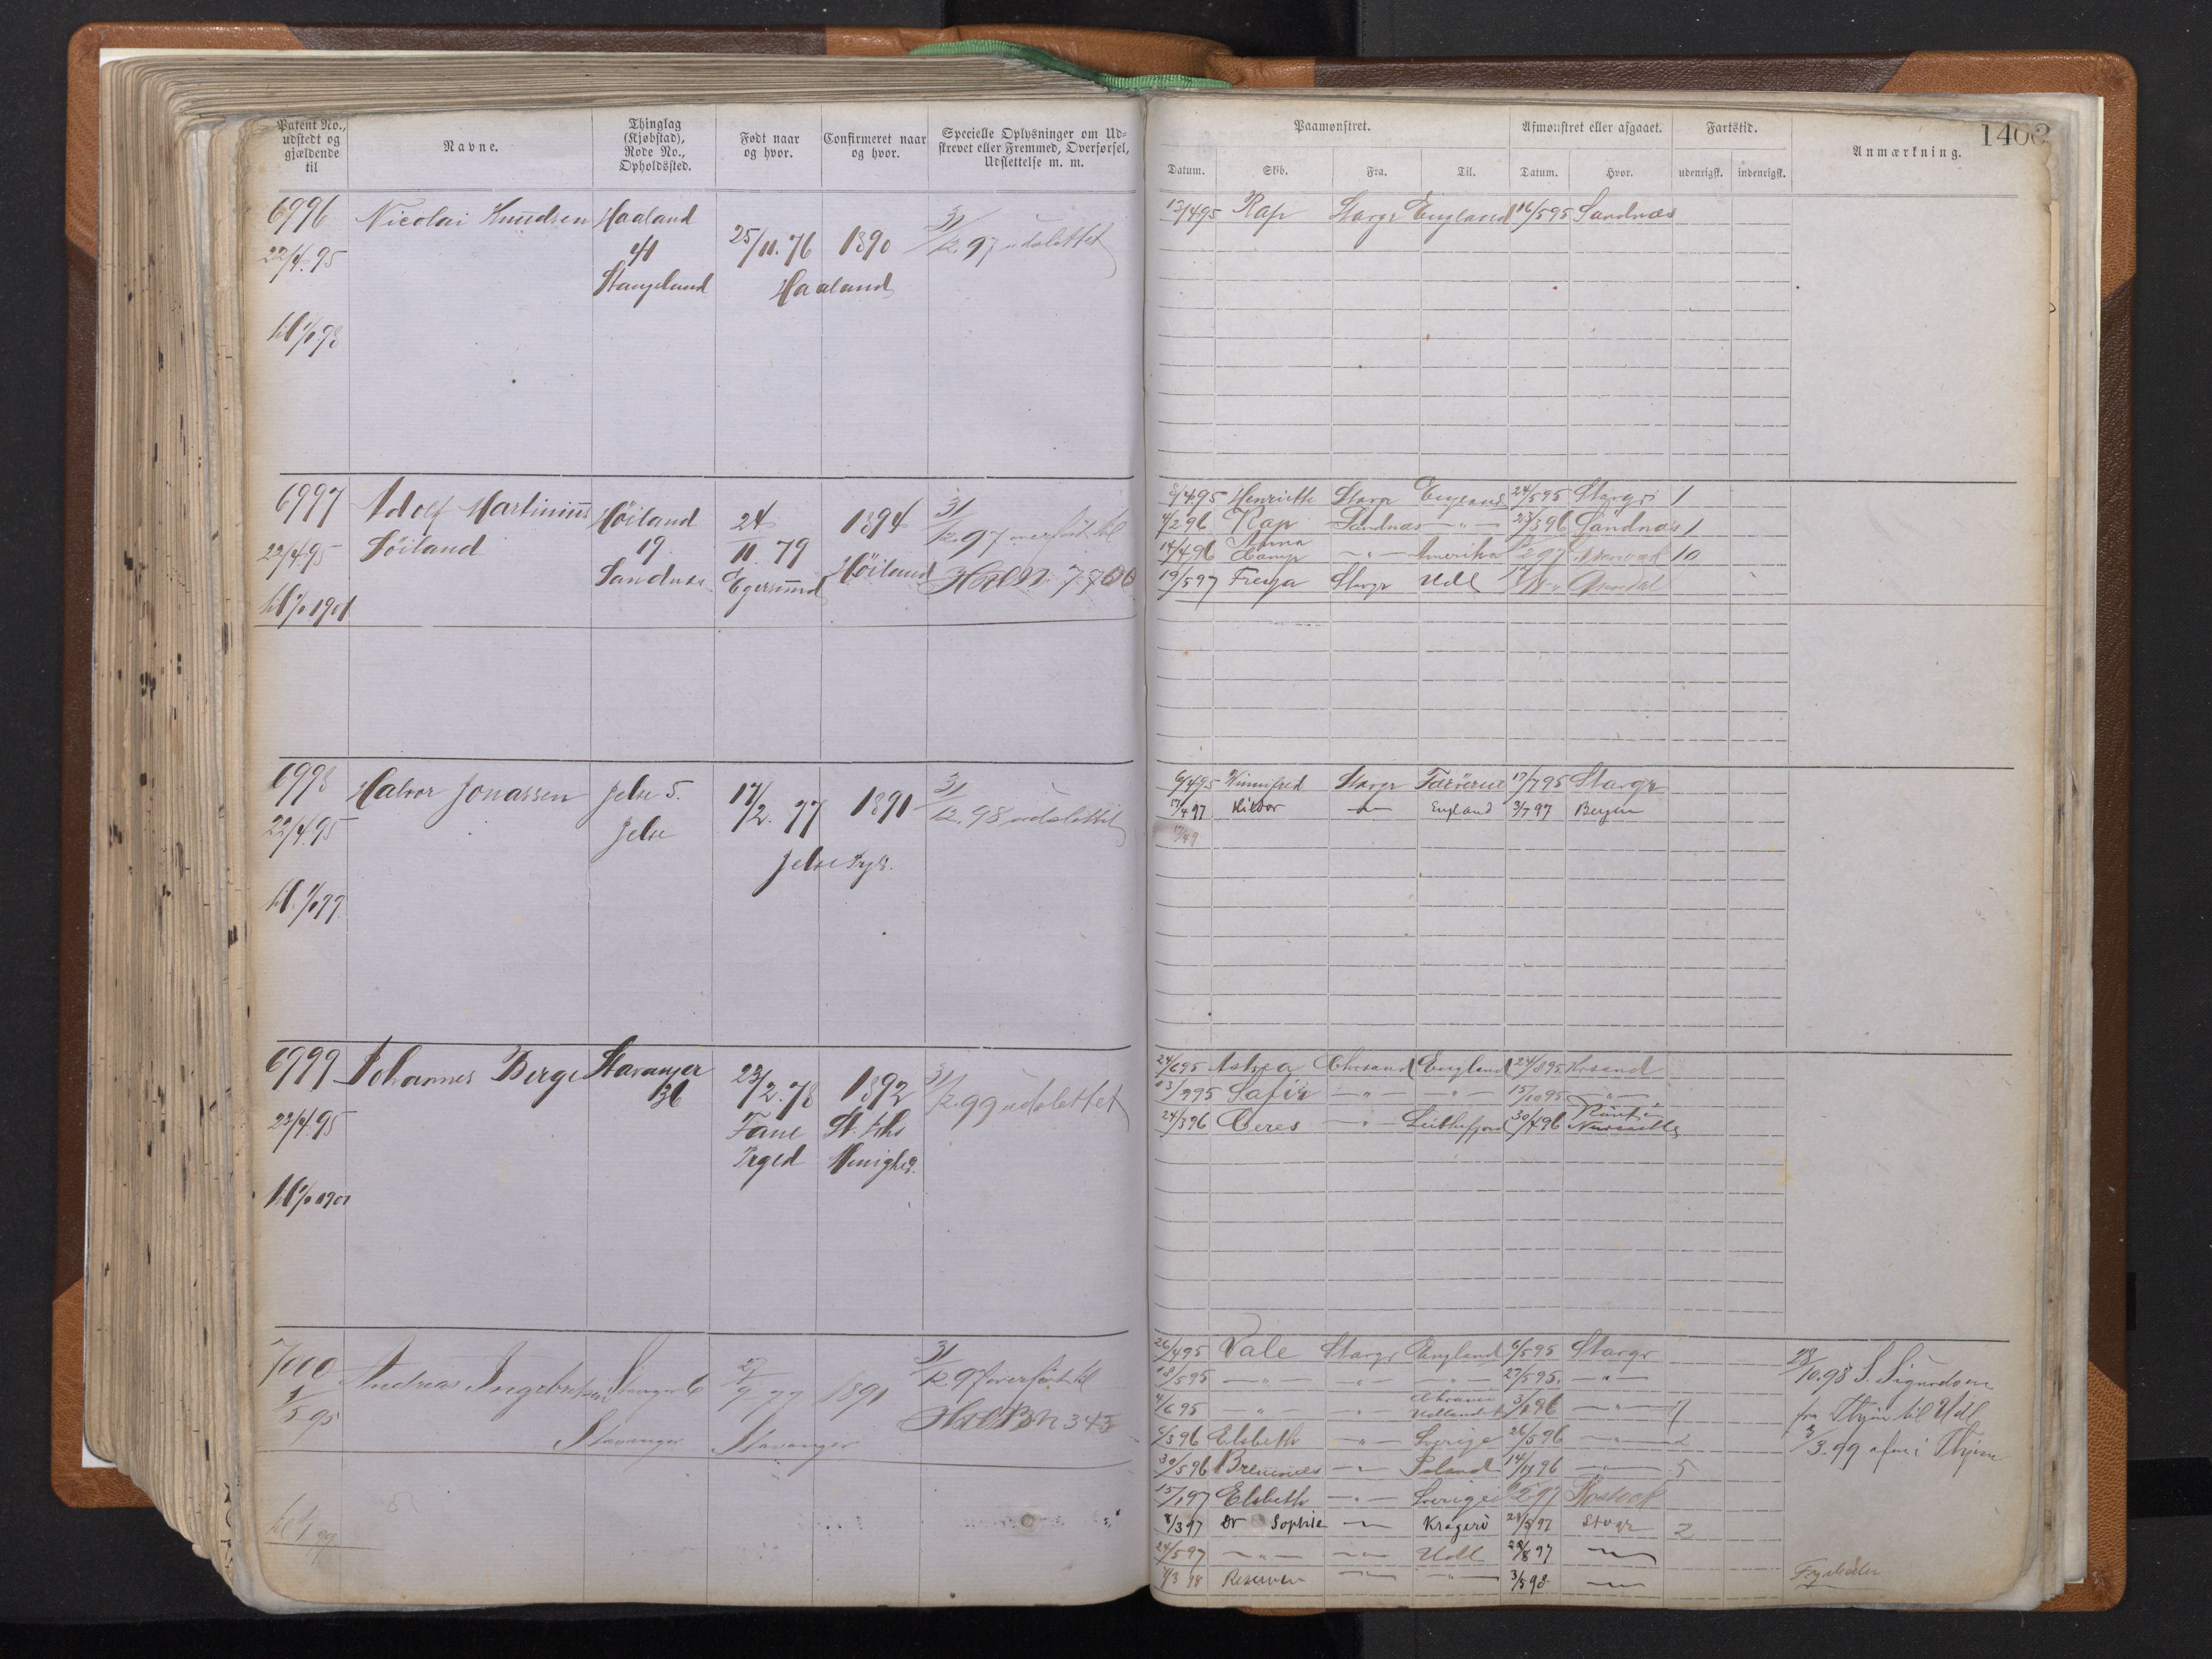 1400
Patent No., udstedt og gjældende til
Navne.
Thinglag (Kjøbstad), Rode No., Opholdssted.
Født naar og hvor.
Confirmeret naar og hvor.
Specielle Oplysninger om Udskrevet eller Fremmed, Overførsel, Udslettelse m. m.
Paamønstret.
Afmønstret eller afgaaet.
Fartstid.
Anmærkning.
Datum. Skib. Fra. Til. Datum. Hvor. udenrigsk. indenrigsk.
6996 Nicolai Knudsen Haaland 25/11.76 1890 31/12.97 udslettet
22/4.95 41
Stangeland Haaland
til 1/1 98
13/4 95 Rap Stavgr England 16/5 95 Sandnæs
6997 Adolf Martinius Høiland 24 1894 31/12.97 overført til
22/4 95 Søiland 19 11. 79 Høiland
Sandnæs Egersund
til 1/1 1901
8/4 95 Henriette Stavgr England 24/5 95 Stavgr 1
4/2 96 Rap Sandnæs — " — 23/3 96 Sandnæs 1
14/4 96 Anna Camp — " — Amerika 10
19/5 97 Freya Stavgr Udl Arendal
6998 Halvor Jonassen Jelse 5. 17/2. 77 1891 31/12.98 udslettet
22/4.95 Jelse
Jelse Prgld.
til 1/1 99
6/4 95 Winnifred Stavgr 17/7 95 Stavgr
17/4 97 — " — England 3/7 97 Bergen
6999 Johannes Berge Stavanger 23/2.78 1892 31/12.99 udslettet
136
23/4.95 Fane St. Phs
Prgld Menighed.
til 1/1 1901
24/6 95 Astrea Chrsand England 24/8 95 Krsand
13/9 95 Safir — " — — " — 15/10 95 — " —
24/3 96 Ceres — " — 30/4 96
7000 Andreas Ingebretsen Stavanger 6 27/9 77 1891 31/12 97 overført til
1/5 95 343
Stavanger Stavanger
til 1/1 99
26/4 95 Vale Stavgr England 6/5 95 Stavgr
18/5 95 — " — — " — — " — 27/5 95. — " —
4/6 95 — " — — " — Udlandet — " — 7
6/3 96 Elsbeth — " — Sverige 26/5 96 — " — 2
30/5 96 Bremnes — " — Island 14/11 96 — " — 5
15/1 97 Elsbeth — " — Sverige Rostock
8/3 97 Dr Sophie — " — Kragerø 24/5 97 Stvgr 2
24/5 97 — " — — " — Udl 28/8 97 — " —
Reserven — " — — " — 3/5 98 — " —
28/10.98 S. Sigurdson
fra Thjem til Udl
3/3.99 afm i Thjem